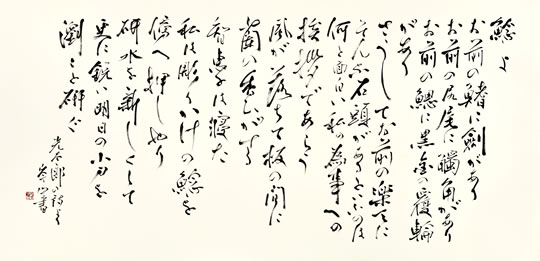 鯰よ
お前の鰭に劍があり
お前の尻尾に觸角があり
お前の鰓に黒金の覆輪
があり
さうしてお前の楽天に
そんな石頭があるといふのは
何と面白い私の為事への
挨拶であらう
風が落ちて板の間に
蘭の香ひがする
智恵子は寝た
私は彫りかけの鯰を
傍へ押しやり
研水を新しくして
更に鋭い明日の小刀を
瀏々と研ぐ
光太郎詩
書